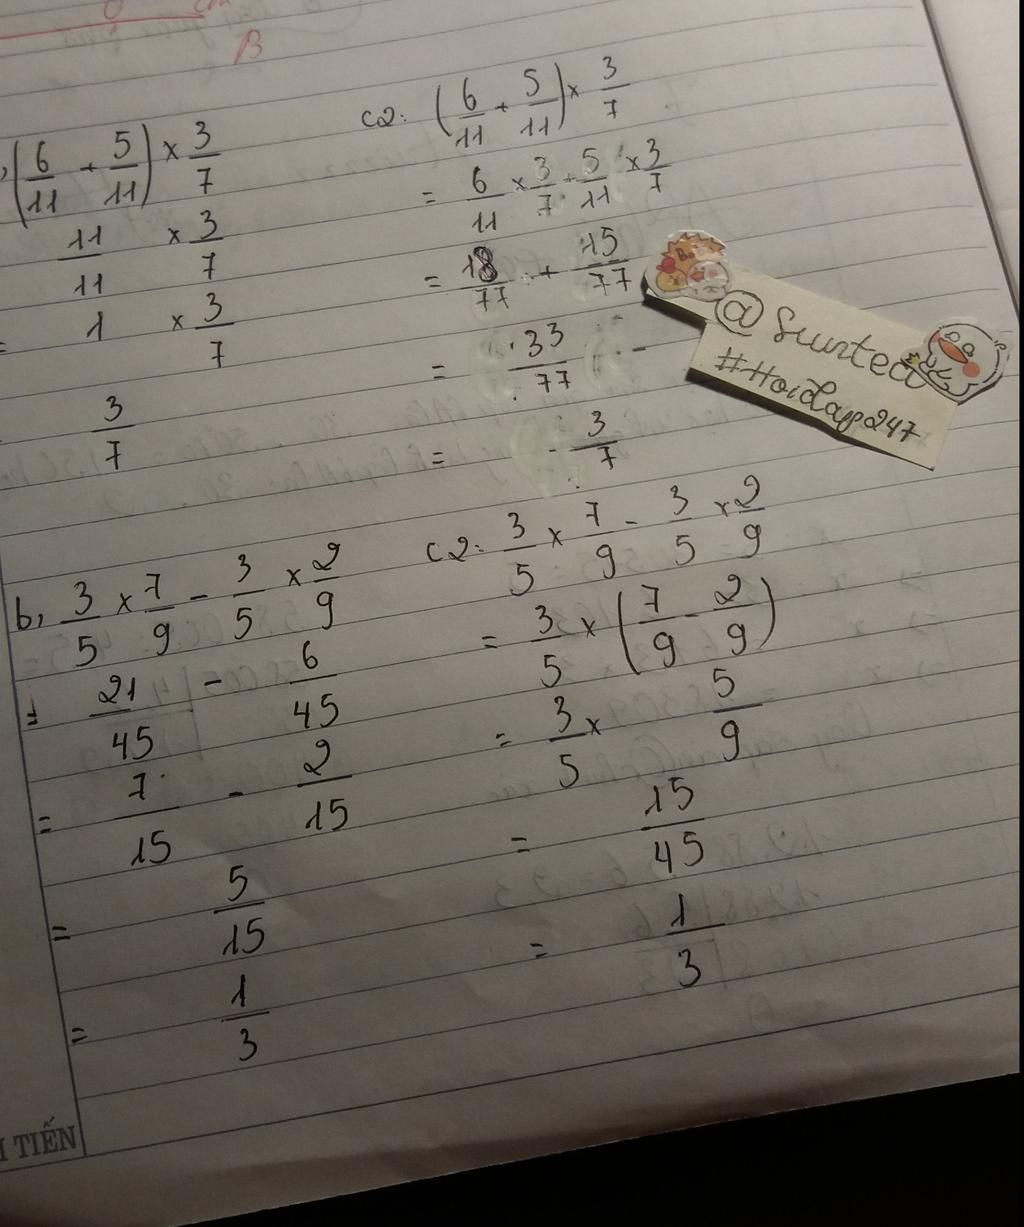 B
, (6/11 + 5/11) × 3/7
11/11 × 3/7
= 1 × 3/7
3/7
c2: (6/11 + 5/11) × 3/7
= 6/11 × 3/7 + 5/11 × 3/7
= 18/77 + 15/77
= 33/77
= 3/7
@Suntea
#Hoidap247
b, 3/5 × 7/9 - 3/5 × 2/9
= 21/45 - 6/45
= 7/15 - 2/15
= 5/15
= 1/3
c2: 3/5 × 7/9 - 3/5 × 2/9
= 3/5 × (7/9 - 2/9)
= 3/5 × 5/9
= 15/45
= 1/3
TIẾN